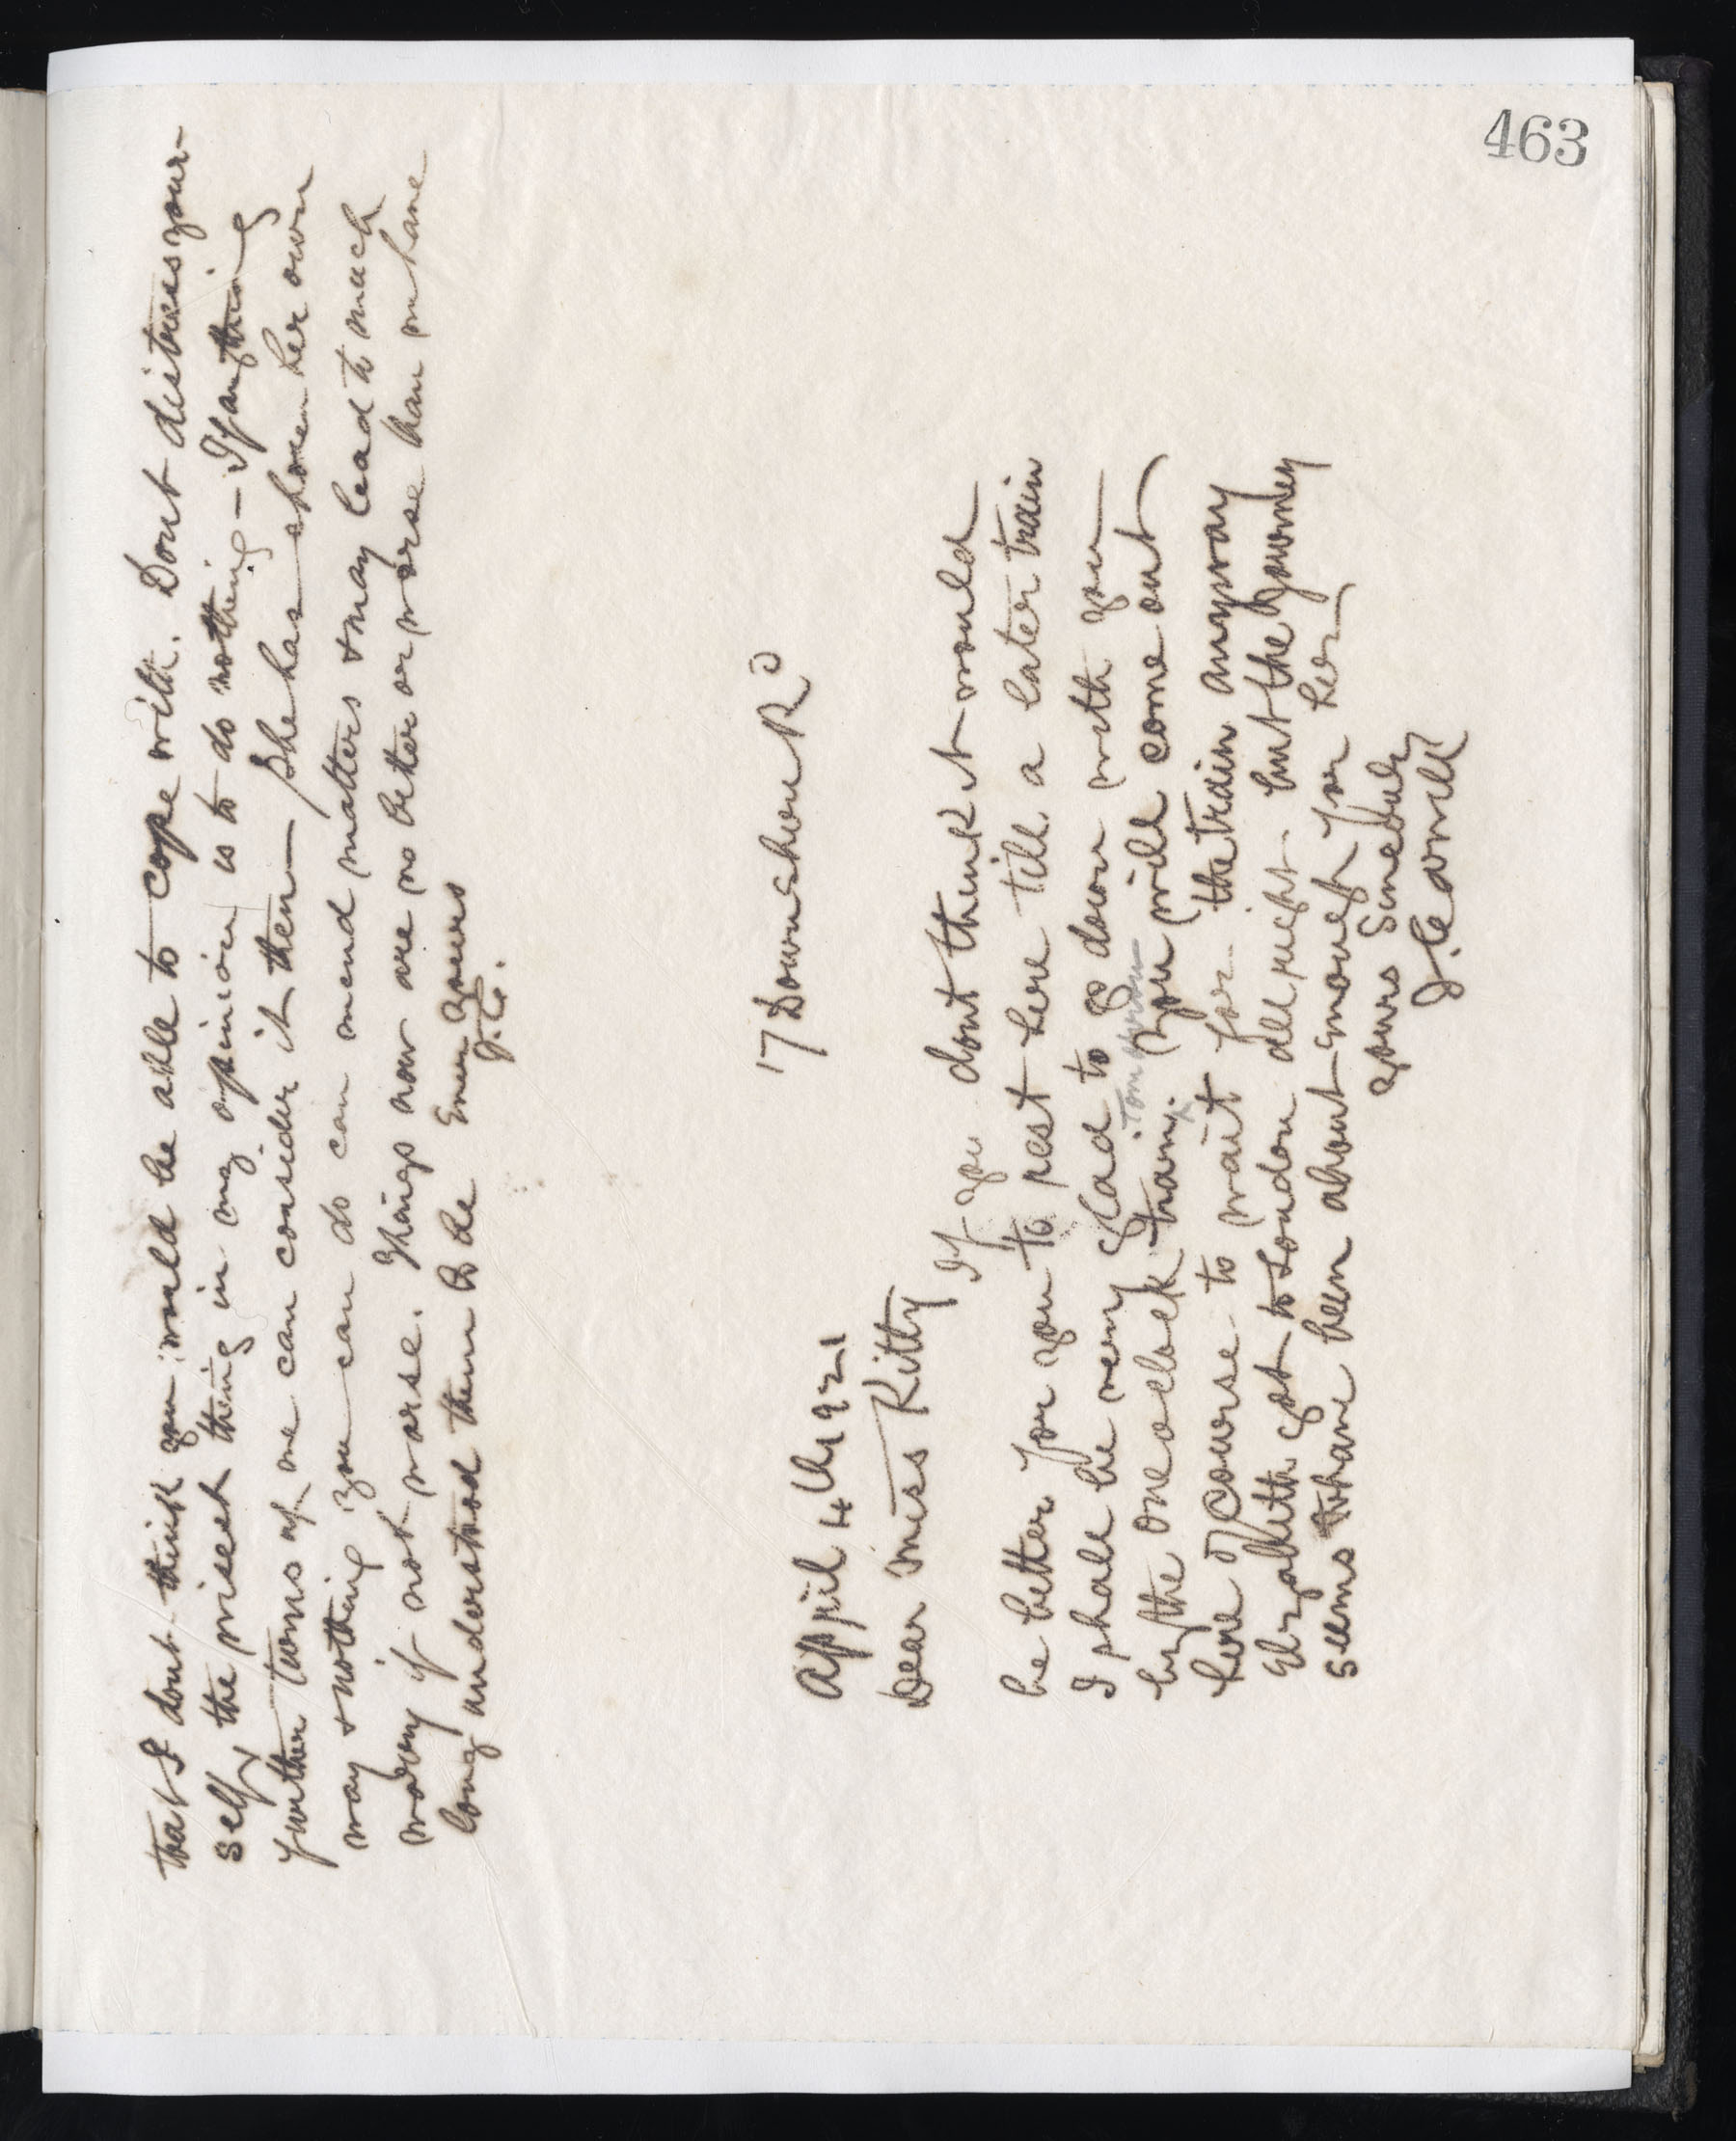 463
that I dont think you would be able to cope with. Dont distress your-
self, the wisest thing in my opinion is to do nothing - If anything
further turns up we can consider it then - She has shown her own
way & nothing you can do can mend matters & may lead to much
worry if not worse. Things now are no better or worse than we have
long understood them to be Ever yours
J. C.
17 Downshire Rd
April 4th 1921
Dear Miss Kitty
If you dont think it would
be better for you to rest here till a later train
I shall be very glad to go down with you
by the one oclock tram. you will come out
here of course to wait for the train anyway
Elizabeth got to London all right - but the journey
seems to have been about enough for her
yours Sincerely
J. C